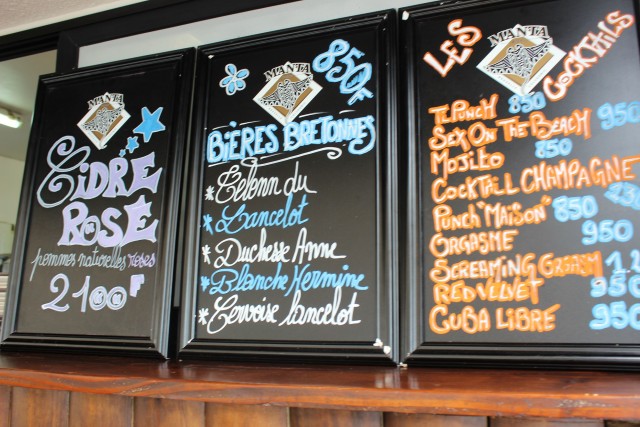 MANTA
CIDRE
ROSÉ
pommes naturelles roses
2100F
MANTA
850F
BIÈRES BRETONNES
* Telenn du
* Lancelot
* Duchesse Anne
* Blanche Hermine
* Cervoise lancelot
MANTA
LES COCKTAILS
TI PUNCH 850
SEX ON THE BEACH 950
MOJITO 850
COCKTAIL CHAMPAGNE
PUNCH "MAISON" 850
ORGASME 950
SCREAMING
RED VELVET 950
CUBA LIBRE 950